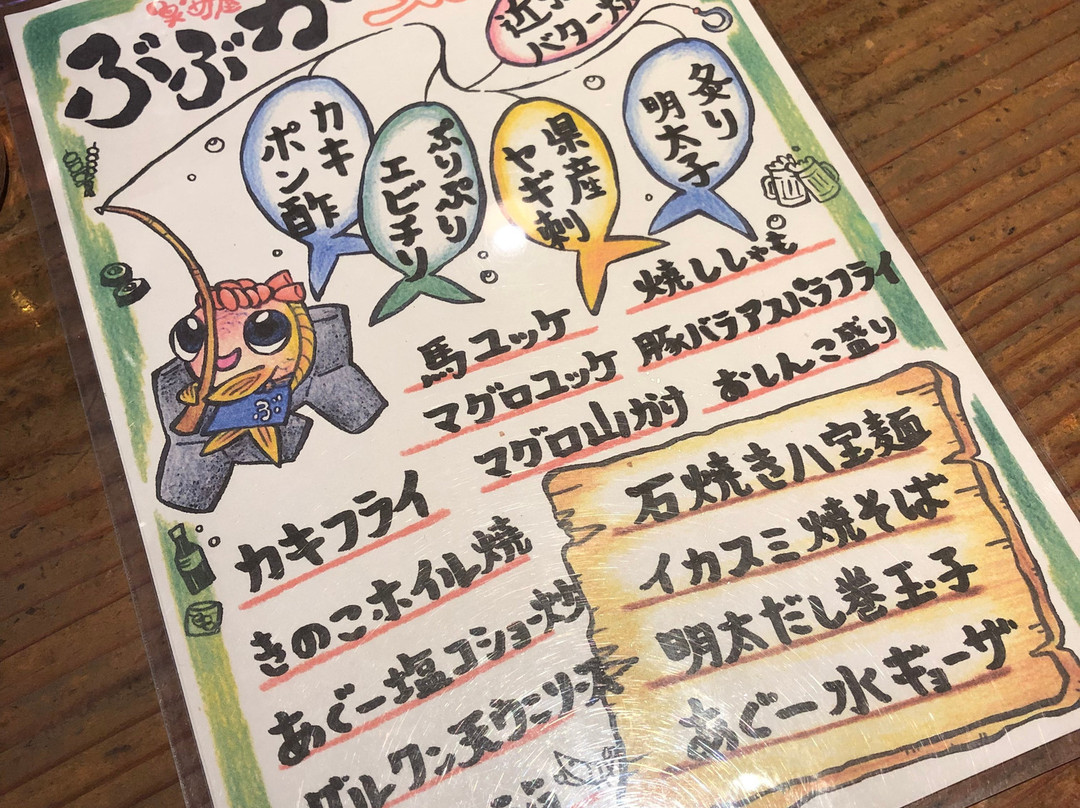 ぶぶか
バター焼
炙り
明太子
県産
ヤギ刺
ぷりぷり
エビチリ
カキ
ポン酢
ぶ
焼ししゃも
馬ユッケ
豚バラアスパラフライ
マグロユッケ
おしんこ盛り
マグロ山かけ
カキフライ
きのこホイル焼
あぐー塩コショー炒
グルクン天ウニソース
石焼き八宝麺
イカスミ焼そば
明太だし巻玉子
あぐー水ギョーザ